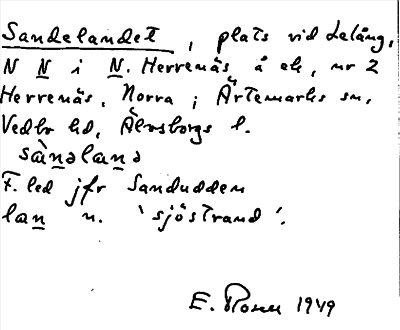 Sandelandet, plats vid Lelång,
N N i N. Herrenäs å ek, nr 2
Herrenäs, Norra; Ärtemarks sn,
Vedbo hd, Älvsborgs l.
sàn̲əlan̲ə
F. led jfr Sandudden
lan̲ n. 'sjöstrand'.
E. Rosen 1949